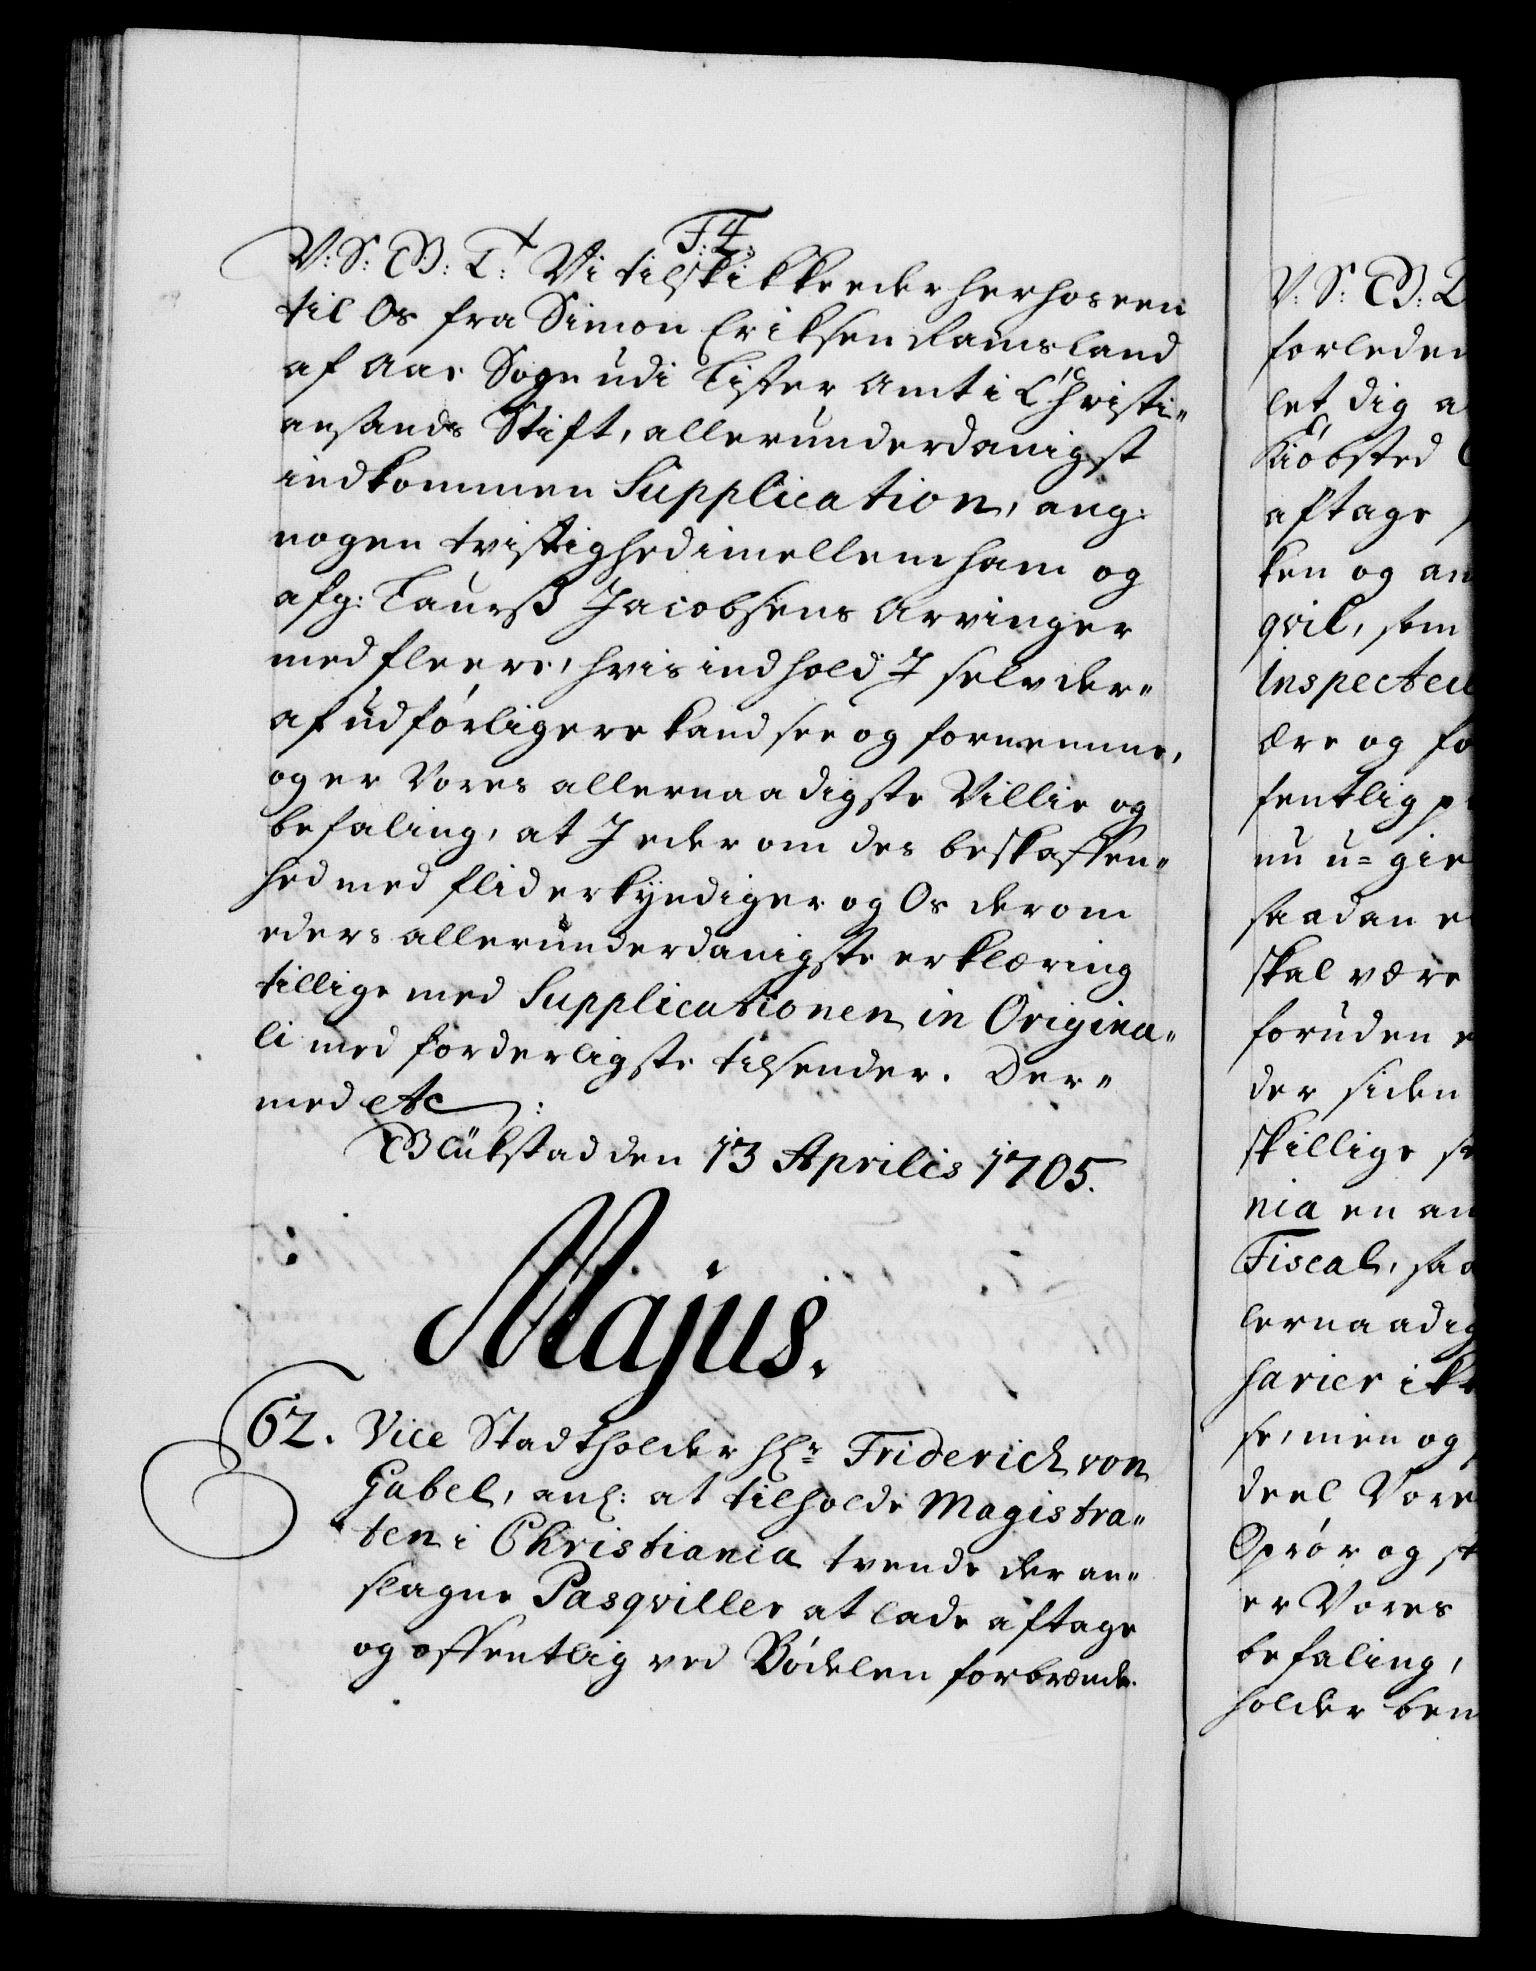 F. 4.
V: S: G: T: Vi tilskikker eder herhos een
til Os fra Simon Eriksen Ramsland
af Aas Sogn udi Lister Amt i Christi-
ansands Stift, allerunderdanigst
indkommen Supplication, ang:
nogen tvistighed imellem ham og
afg: Laurß Jacobsens Arvinger
med fleere, hvis indhold I selv der-
af udførligere kand see og fornemme,
og er Vores allernaadigste Villie og
befaling, at I eder om des beskaffen-
hed med flid erkyndiger og Os derom
eders allerunderdanigste erklæring
tillige med Supplicationen in Origina-
li med forderligste tilsender. Der-
med etc:
Glükstad den 13 Aprilis 1705.
Majus.
62. Vice Stadtholder Hr Friderich von
Gabel, anl: at tilholde Magistra-
ten i Christiania trende der an-
slagne Pasqviller at lade aftage
og offentlig ved Bödelen forbrænde.
V: S: G:
forleden
let dig a
Kiøbsted
aftage
ken og an
qvil, som
Inspecteu
ære og fo
fentlig p
nu u-gie
saadan e
skal være
foruden e
der siden
skillige s
nia en an
Fiscal, saa
lernaadig
harier ikk
se, men og
deel Vore
Oprör og st
er Vores
befaling,
holder ben